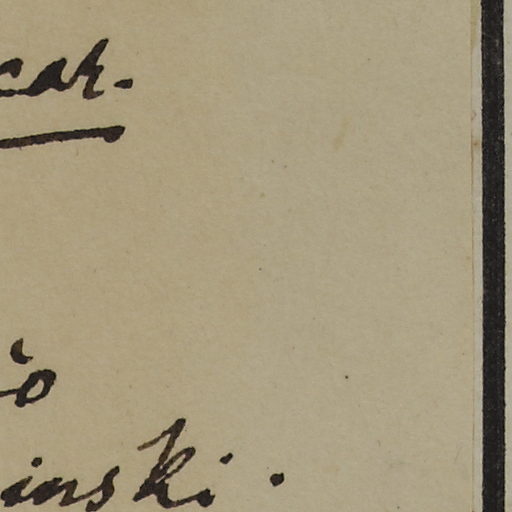 car.
io
inski.